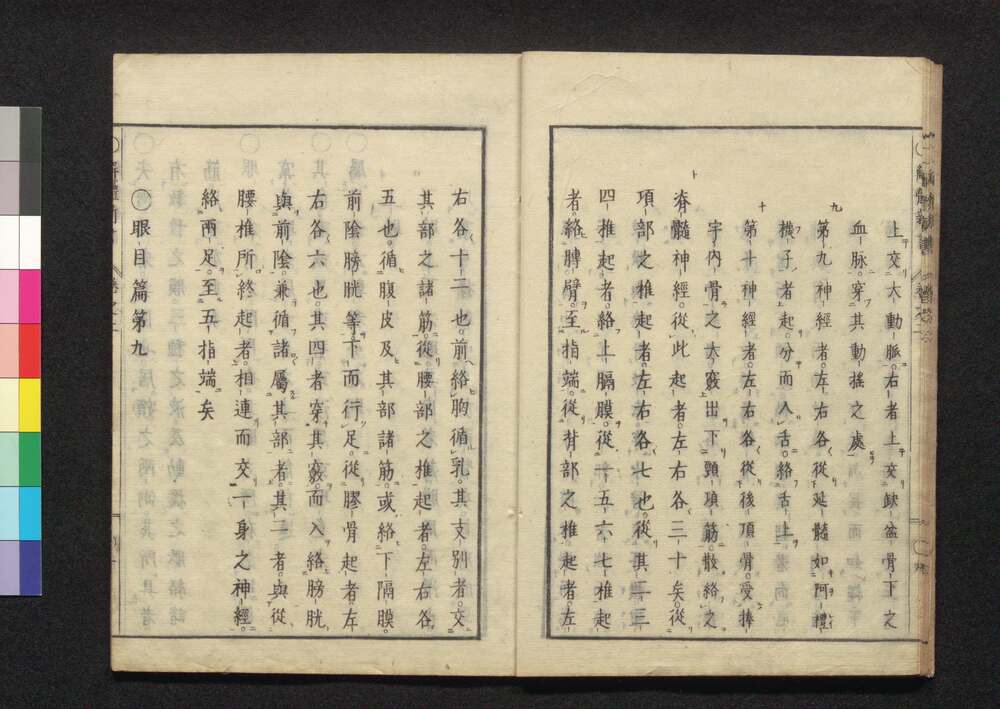 上交大動脈。右者上交缺盆骨下之
血脉。穿其動搖之處
九
第九神經者。左右各從下延髓如阿禮
機子者起。分而入舌。絡舌上
十
第十神經者。左右各從後頂骨。受捧
宇內骨之大竅出下頸項筋。散絡之
ト
脊髓神經。從此起者。左右各三十矣。從
項部之椎起者。左右各七也。從其二三
四椎起者。絡上膈膜。從十五六七椎起
者。絡膊臂。至指端。從背部之椎起者。左
右各十二也。前絡胸循乳。其支別者。交
其部之諸筋。從腰部之椎起者。左右各
五也。循腹皮及其部諸筋。或絡下隔膜。
前陰膀胱等。下而行足。從膠骨起者。左
右各六也。其四者穿其竅。而入絡膀胱
與前陰。兼循諸屬其部者。其二者。與從
腰椎所終起者。相連而交。一身之神經。
絡兩足。至五指端矣
〇眼目篇第九